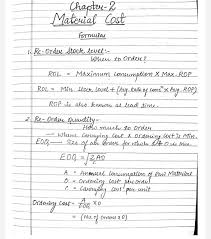 Chapter-2
Material Cost
Formulas
1. Re-Order Stock level:-
When to Order?
ROL = Maximum consumption x Max. ROP
ROL = Min. Stock level + (Avg. rate of cons. x Avg. ROP)
ROP is also known as lead time.
2. Re-Order Quantity-
How much to order
Where carrying cost & ordering cost is Min.
EOQ - Size of an order for which total is Min.
EOQ = √2AO
C
A = Annual consumption of Raw Material
O = Ordering cost per order
C = Carrying cost per unit
Ordering cost = A x O
EOQ
= (No. of orders x O)